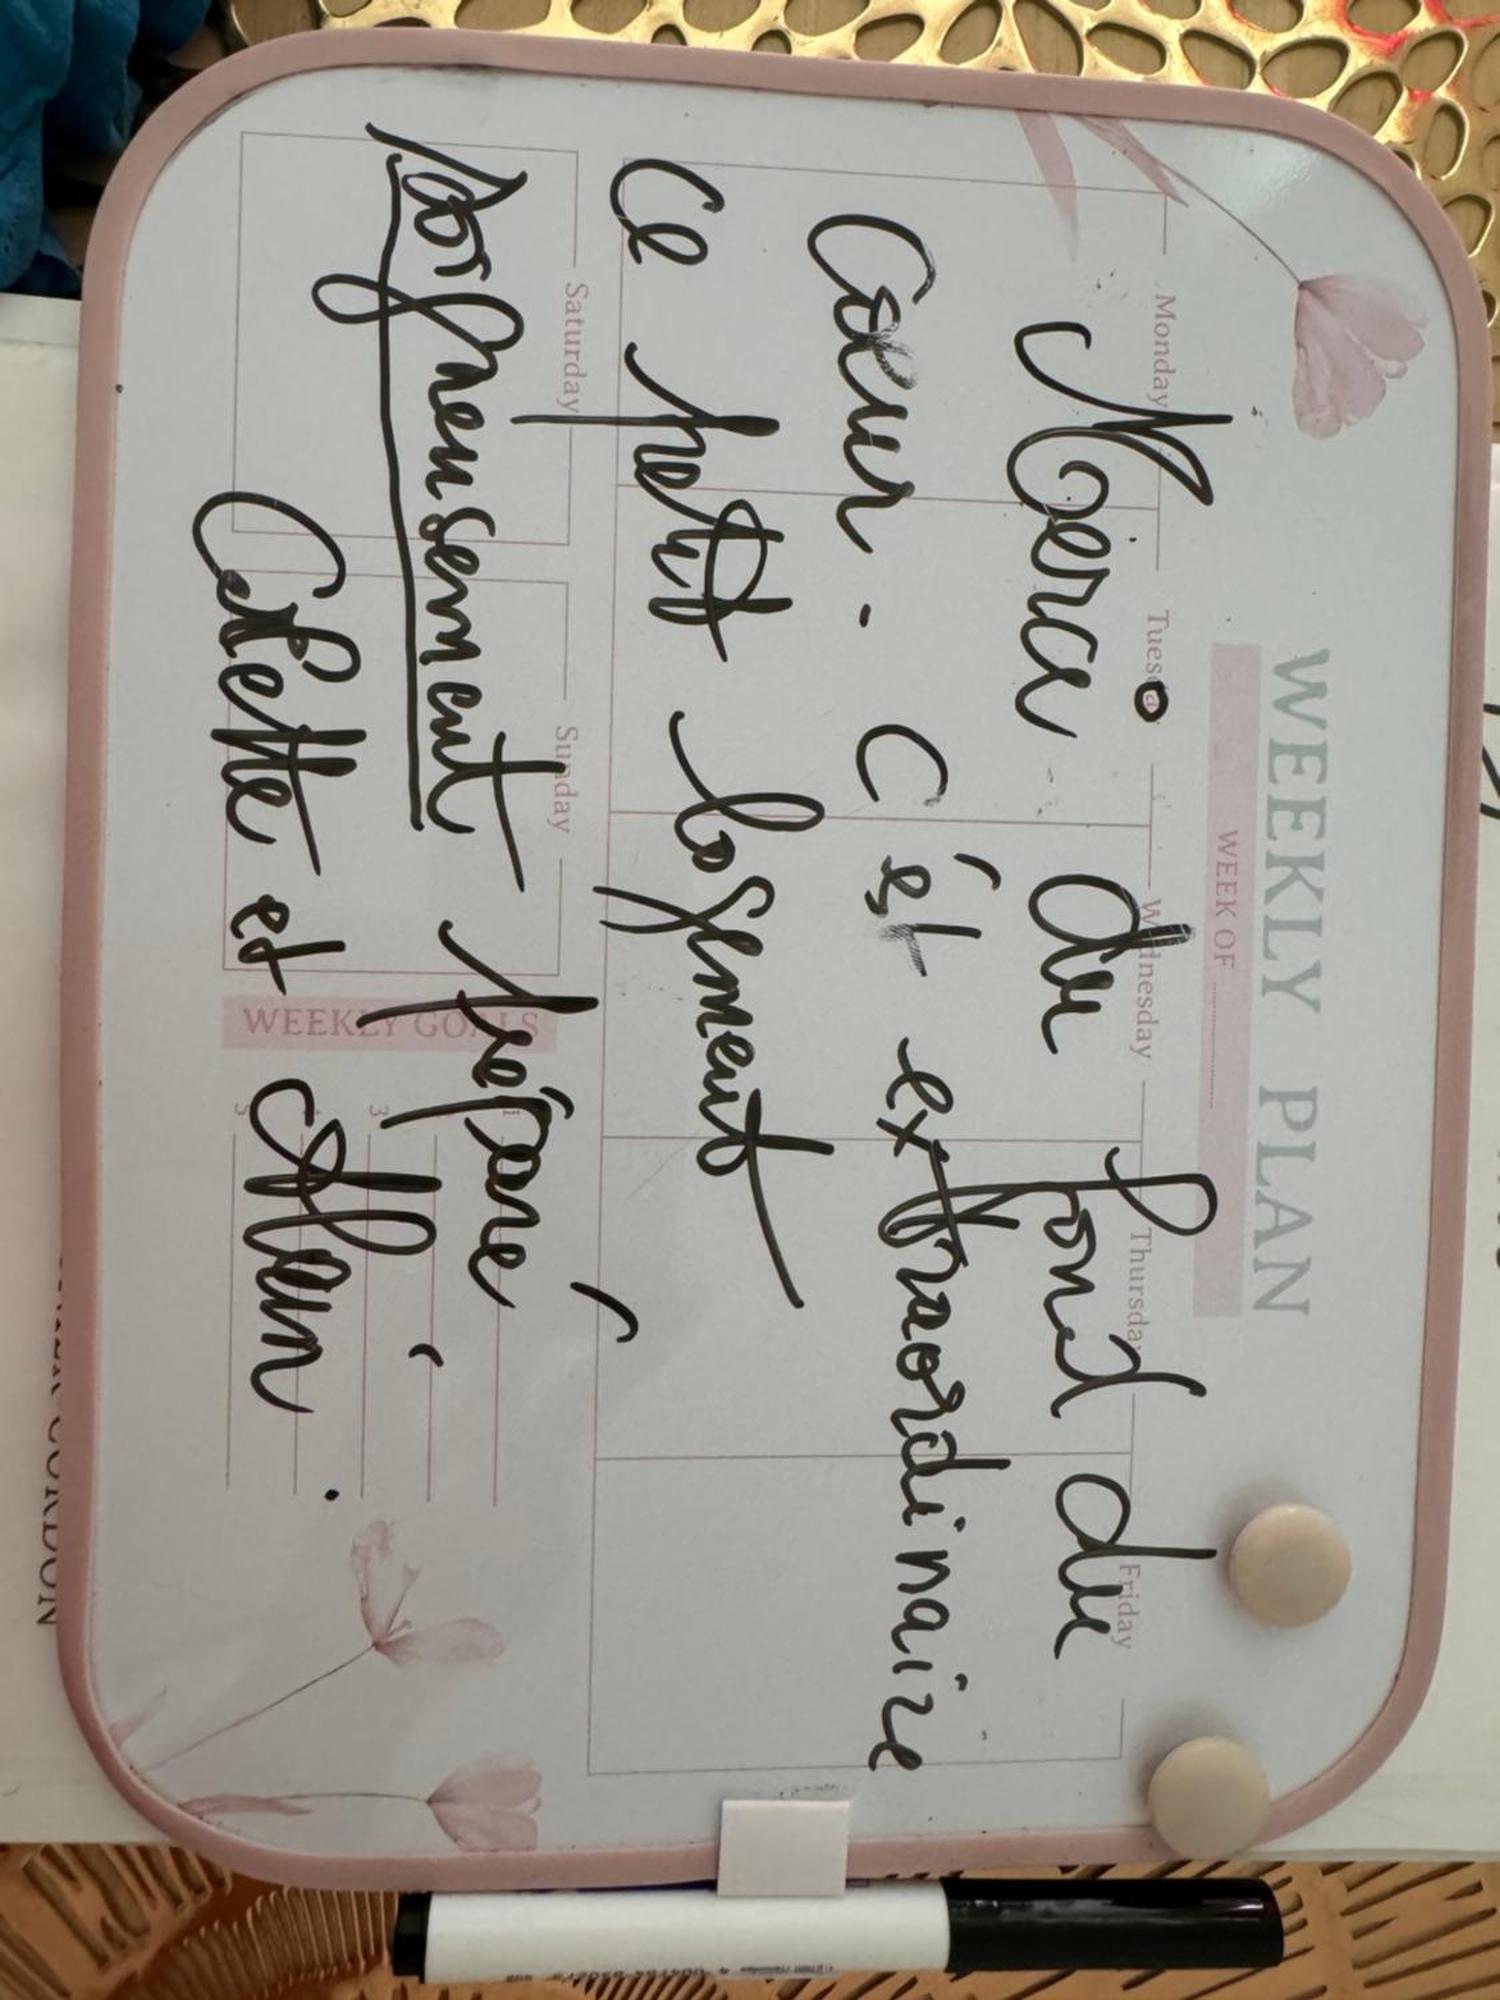 WEEKLY PLAN
WEEK OF
Monday Tuesda Wednesday Thursday Friday
Merci du fond du
Coeur. C'ét extraordinaire
Ce petit logement
Saturday Sunday
Soigneusement préparé
WEEKLY GOALS
3
5
Colette et Alain.